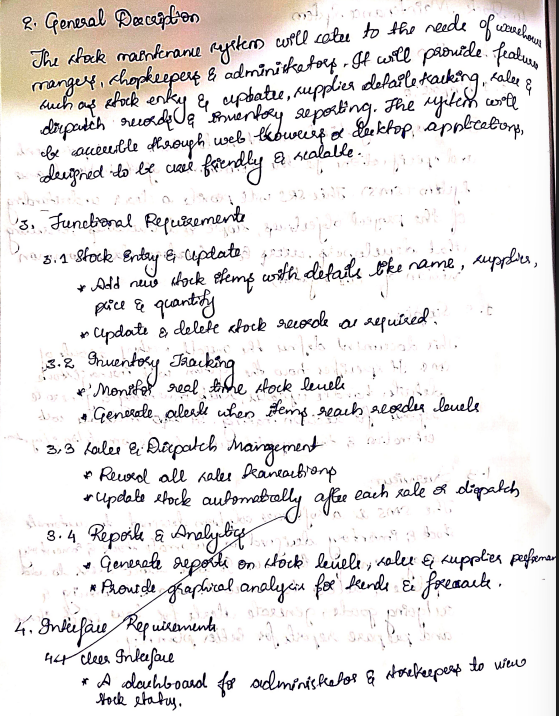 2. General Description
The stock maintenance system will cater to the needs of warehouse
mangers, shopkeepers & administrators. It will provide features
such as stock entry & updates, supplier details tracking, sales &
dispatch records & inventory reporting. The system will
be accessible through web browsers or desktop applications,
designed to be user friendly & scalable.
3. Functional Requirements
3.1 Stock Entry & Update
* Add new stock items with details like name, supplier,
price & quantity
* Update & delete stock records as required.
3.2 Inventory Tracking
* Monitor real time stock levels
* Generate alerts when items reach reorder levels
3.3 Sales & Dispatch Maingement
* Record all sales transactions
* Update stock automatically after each sale or dispatch
3.4 Reports & Analytics
* Generate reports on stock levels, sales & supplier performan
* Provide graphical analysis for trends & forecasts.
4. Interface Requirements
4.1 User Interface
* A dashboard for administrator & storekeepers to view
stock status.